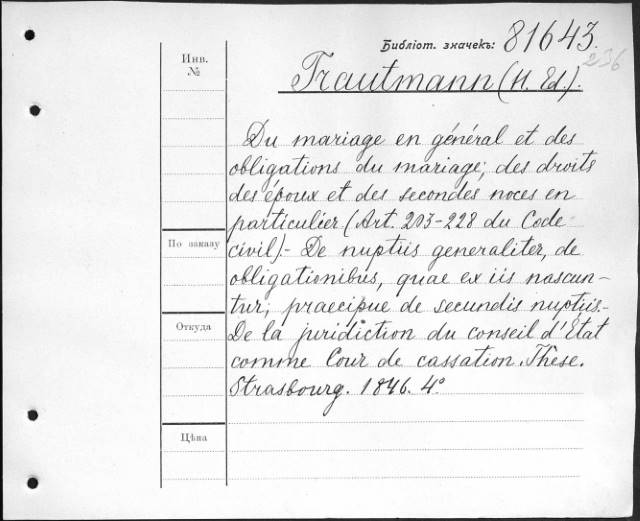 Библіот. значекъ: 81643.
236
Инв.
№
Trautmann (H. Ed.).
Du mariage en général et des
obligations du mariage; des droits
des époux et des secondes noces en
particulier (Art. 203-228 du Code
civil).- De nuptiis generaliter, de
obligationibus, quae ex iis nascun-
tur; praecipue de secundis nuptiis.-
De la juridiction du conseil d'Etat
comme Cour de cassation. Thèse.
Strasbourg. 1846. 4°
По заказу
Откуда
Цѣна